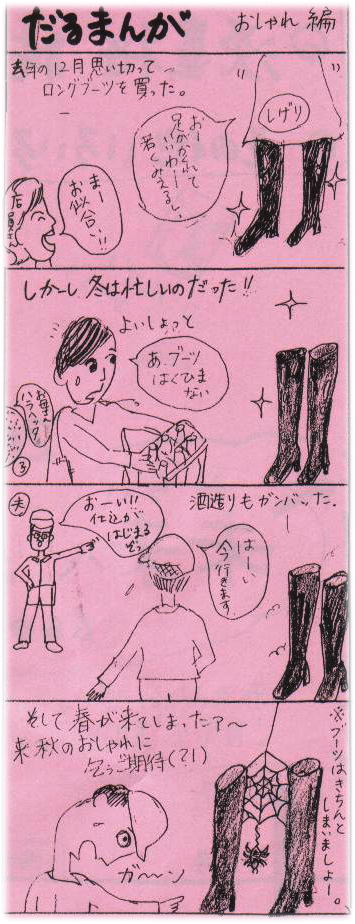 だるまんが
おしゃれ編
去年の12月思い切って〜
ロングブーツを買った。
しげり
おー
足がかくれて
いいわー
若くみえるし
まー
お似合い!!
店員さん
しかーし 冬は忙しいのだった!!
よいしょっと
あ、ブーツ
はくひま
ない
お母さ〜ん
ハラヘッタ
酒造りもガンバッた。
夫
おーい!!
仕込みが
はじまる
ぞぅ
はーい
今行きます
そして 春が来てしまったァ〜
来秋のおしゃれに
乞うご期待(?!)
ガ〜〜ン
※ブーツはきちんと
しまいましょー。